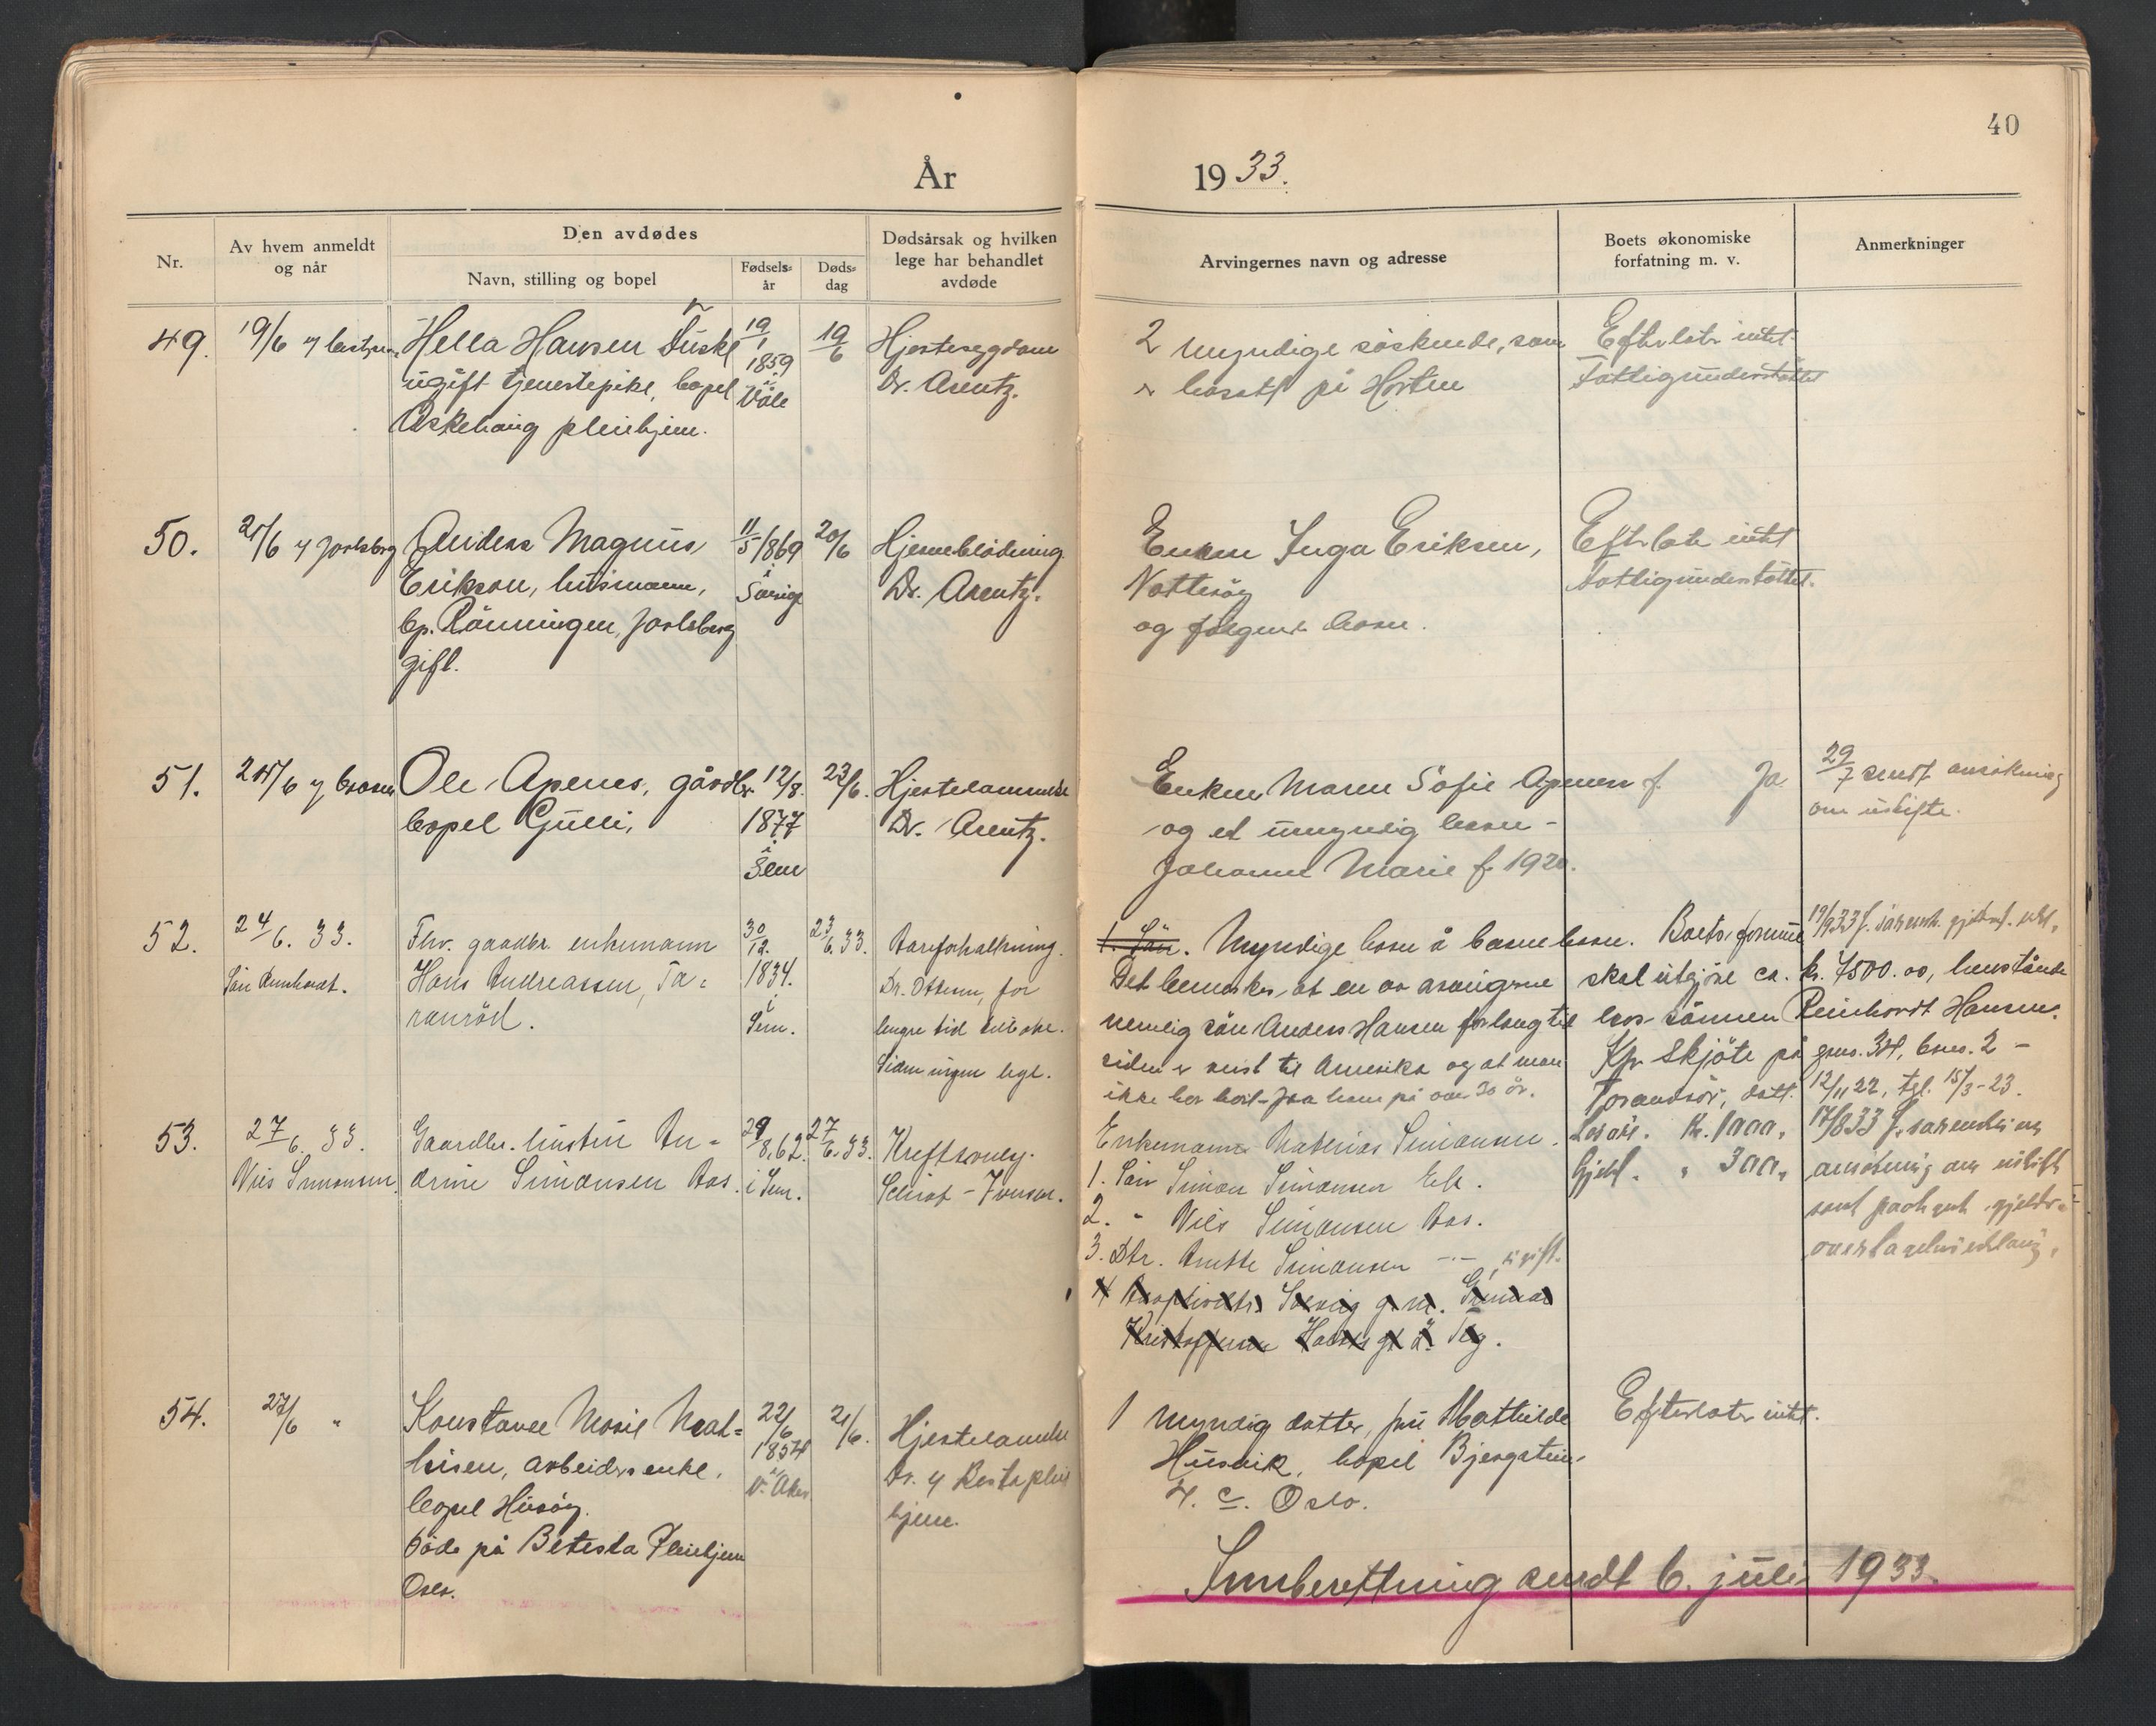 40
År 1933.
Nr.
Av hvem anmeldt
og når
Den avdødes
Navn, stilling og bopel
Fødsels-
år
Døds-
dag
Dødsårsak og hvilken
lege har behandlet
avdøde
Arvingernes navn og adresse
Boets økonomiske
forfatning m. v.
Anmerkninger
49.
19/6
Hella Hansen
ugift tjenestepike, bopel
Askehaug pleiehjem.
19/1
1859
i
Våle
19/6
Hjertesygdom
Dr. Arentz.
2 myndige søskende, som
er bosatt på Horten
Efterlater intet
Fattigunderstøttet
50.
21/6 Jarlsberg
Anders Magnus
Erikson, husmann,
bp. Rönningen, Jarlsberg
gift.
11/5 1869
i
Sverige
20/6
Hjerneblödning
Dr. Arentz.
Enken Inga Eriksen,
Nötteröy
og følgende barn.
Efterlater intet
Fattigunderstöttet.
51.
24/6
Ole Apenes, gårdbr.
bopel Gulli,
12/8
1877
i
Sem
23/6.
Hjertelammelse
Dr. Arentz.
Enken Maren Sofie Apenes f.
og et umyndig barn -
Johanne Marie f. 1920.
Ja
29/7 sendt ansökning
om uskifte.
52.
24/6. 33.
Fhv. gaardbr. enkemann
Hans Andreassen, Ta-
ranröd.
30/12.
1834.
i
Sem.
23/6.33.
Aareforkalkning.
Dr. Ottesen, for
lengre tid tilbake.
Siden ingen lege.
1. Sön. Myndige barn å barnebarn.
Det bemerkes, at en av arvingerne
nemlig sön Anders Hansen for lang tid
siden er reist til Amerika og at man
ikke har hört fra ham på over 30 år.
Boets formue
skal utgjöre ca. kr. 7500.00, henstående
hos sönnen Reinhardt Hansen.
Kfr. Skjöte på gnr. 34, bnr. 2 -
datt. 12/11 22, tgl. 15/3-23.
53.
27/6. 33.
Nils Simonsen.
Gaardbr. hustru An-
drine Simonsen Aas.
29/8.62.
i Sem.
27/6.33.
Kreftsvulst.
Iversen.
Enkemann Mathias Simonsen.
1. Sön Simon Simonsen Ek.
2. " Nils Simonsen Aas.
3. Dtr. Anette Simonsen -"-, ugift.
Lösöre. Kr. 1000,
Gjeld. " 300,
17/8 33 f. sarendes
ansökning om uskifte
samt gjelds-
overtagelseserklæring.
54.
27/6 "
Konstance Marie Mat-
hisen, arbeidersenke,
bopel Husöy.
Döde på Betesta Pleiehjem
Oslo.
22/6
1854
V. Aker
21/6.
Hjertelammelse
hjem.
1 myndig datter, fru Mathilde
Husvik, bopel
4. c. Oslo.
Efterlater intet.
Innberettning sendt 6. juli 1933.